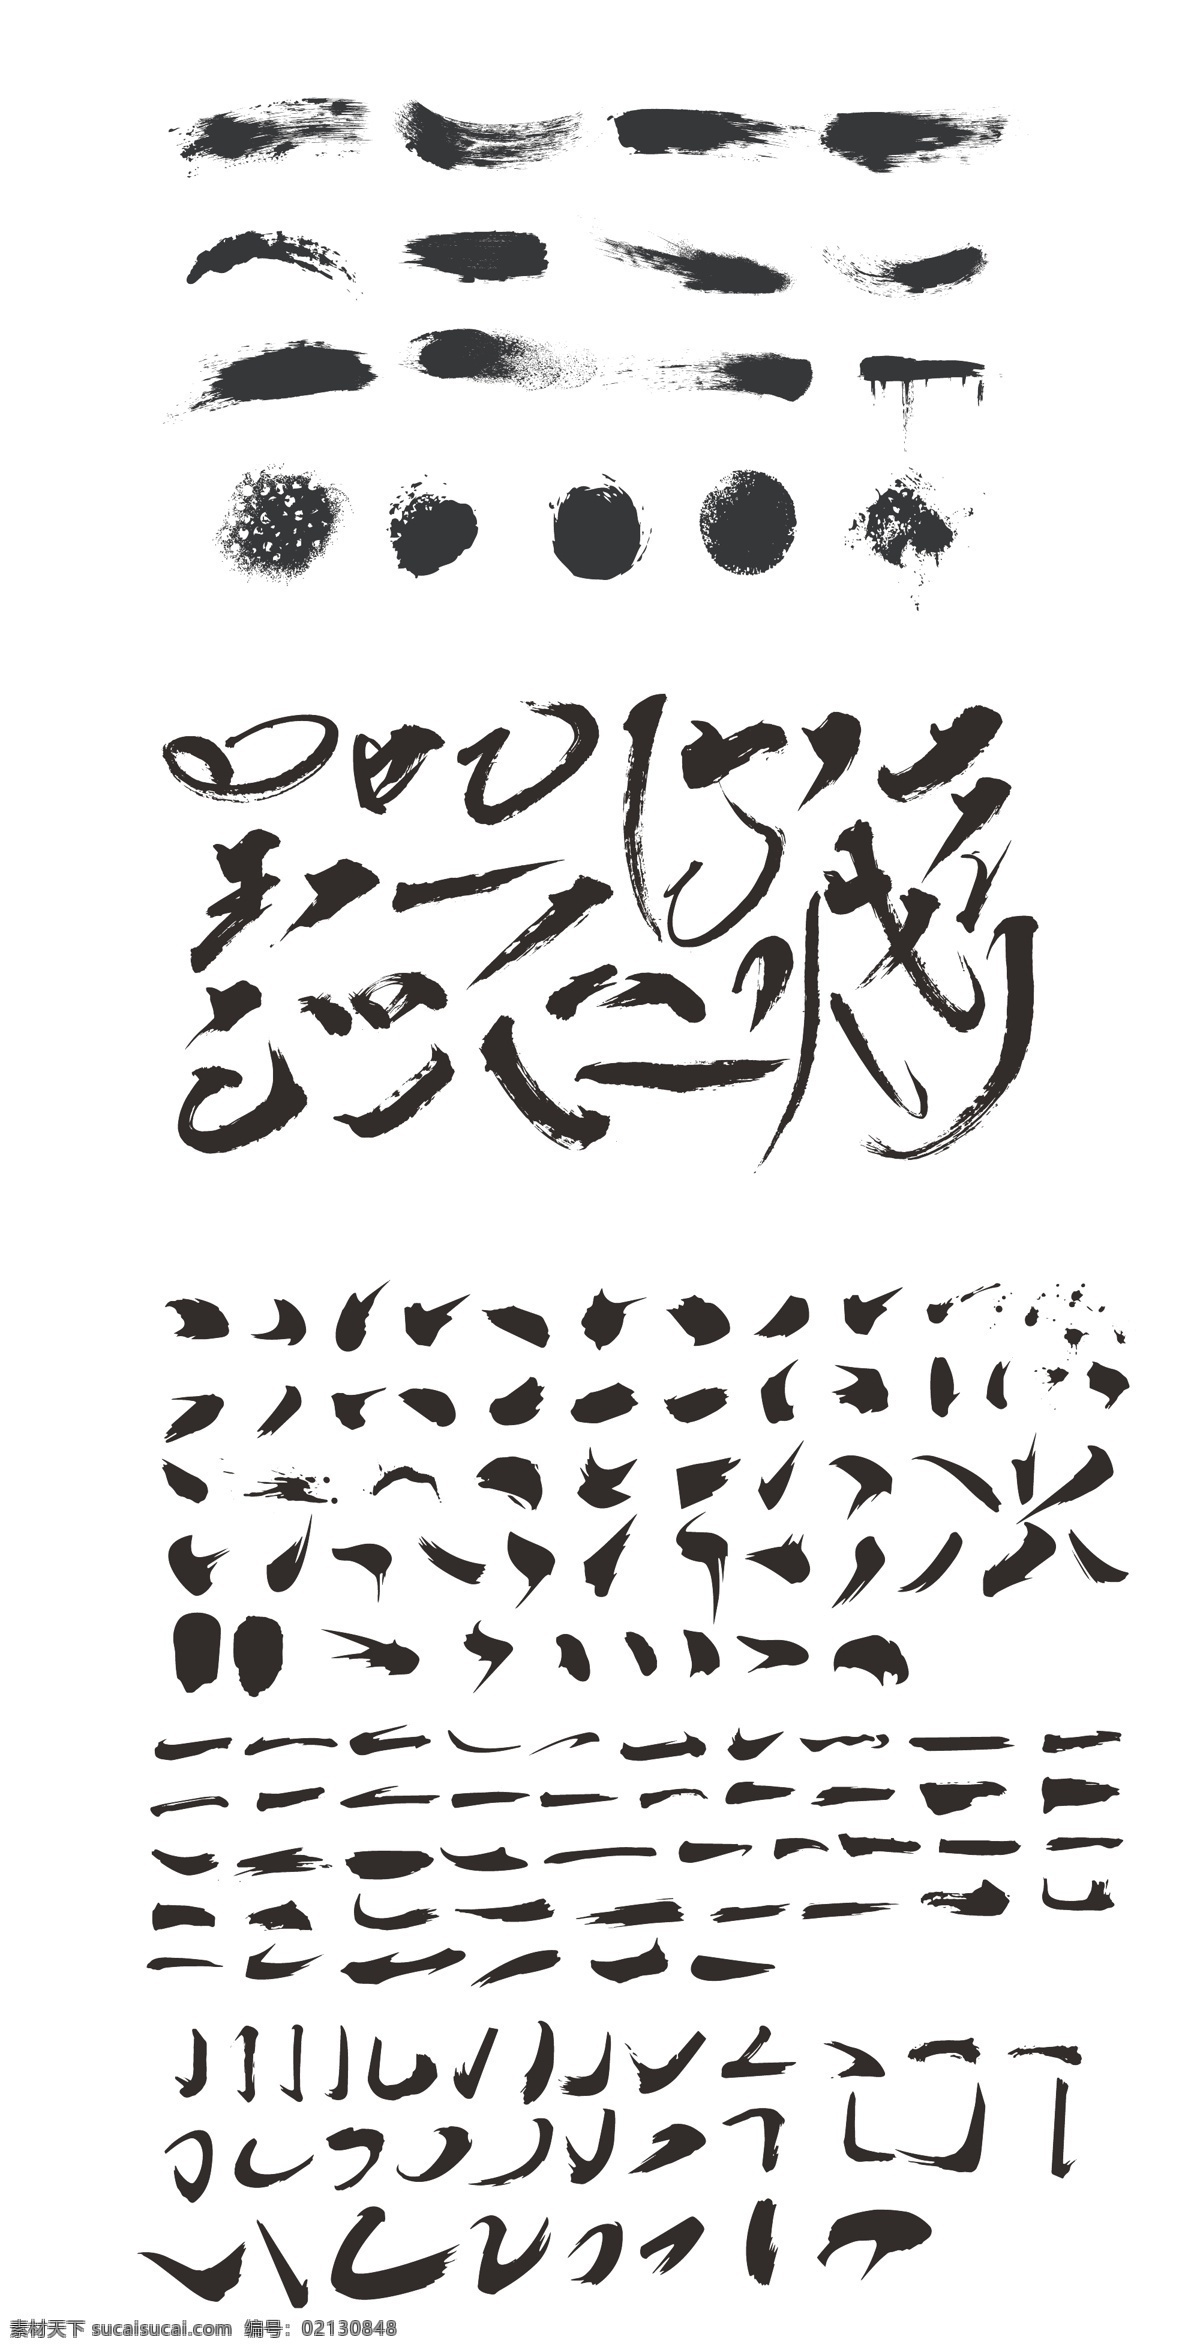 素材天下 sucaisucai.com 编号：02130848